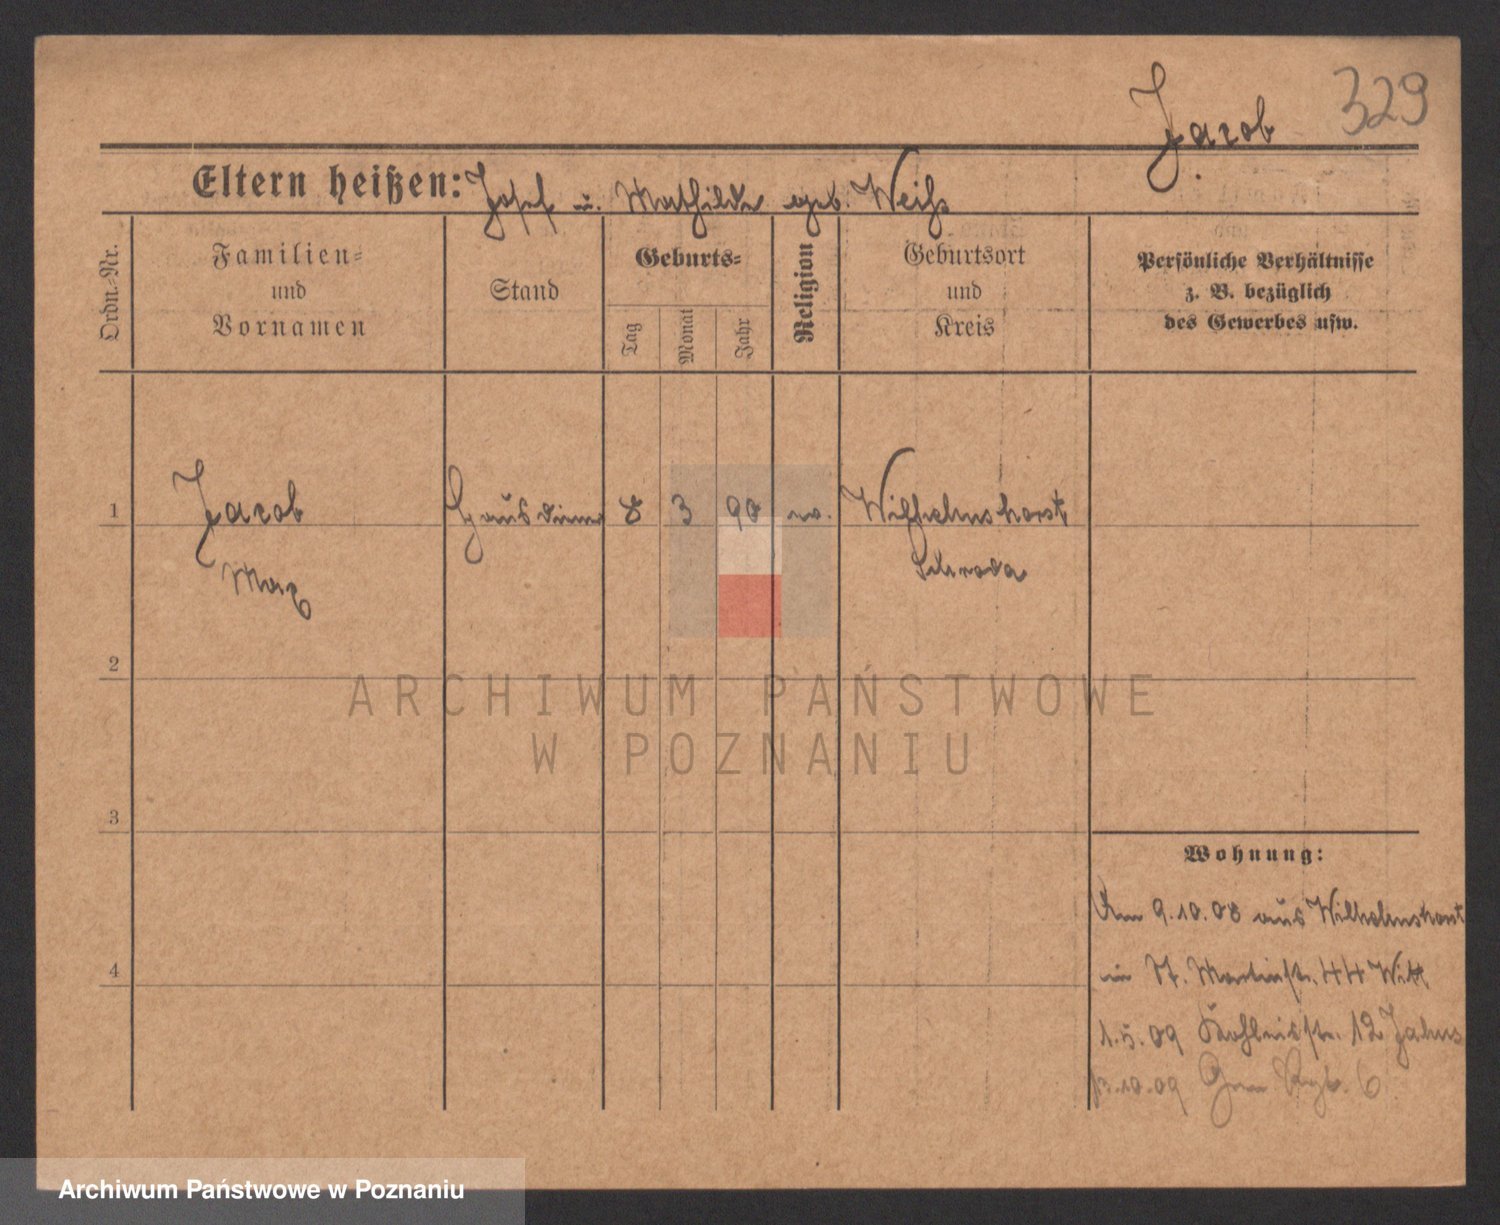 Jacob 329
Eltern heißen: Josef u. Mathilde geb. Weiß
Ordn.-Nr.
Familien-
und
Vornamen
Stand
Geburts-
Tag
Monat
Jahr
Religion
Geburtsort
und
Kreis
Persönliche Verhältnisse
z. B. bezüglich
des Gewerbes usw.
1 Jacob Hausdiener 8 3 90 Wilhelmshorst
Max Schroda
2
ARCHIWUM PAŃSTWOWE
W POZNANIU
3
Wohnung:
Am 9.10.08 aus Wilhelmshorst
in St. Martinstr. 44 Witt
4
1.5.09 12 Jahns
.10.09 6
Archiwum Państwowe w Poznaniu